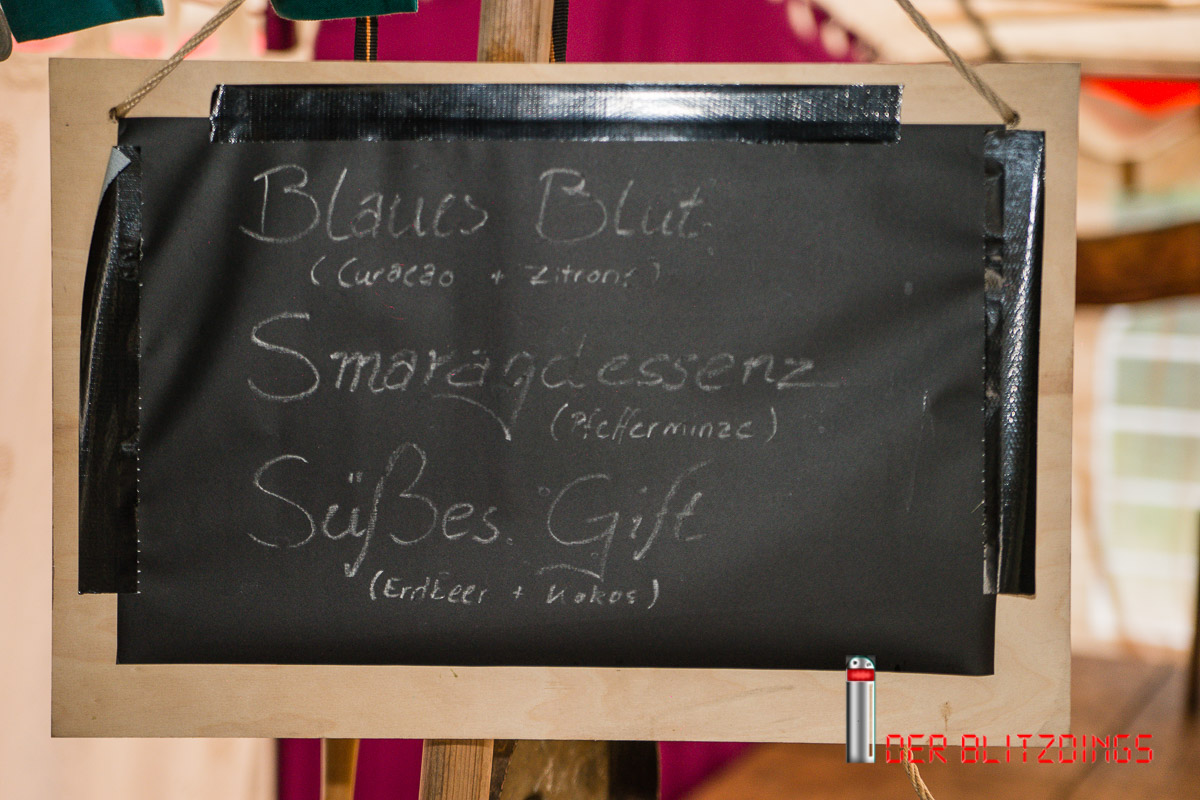 Blaues Blut
(Curacao + Zitrone)
Smaragdessenz
(Pfefferminze)
Süßes Gift
(Erdbeer + Kokos)
DER BLITZDINGS